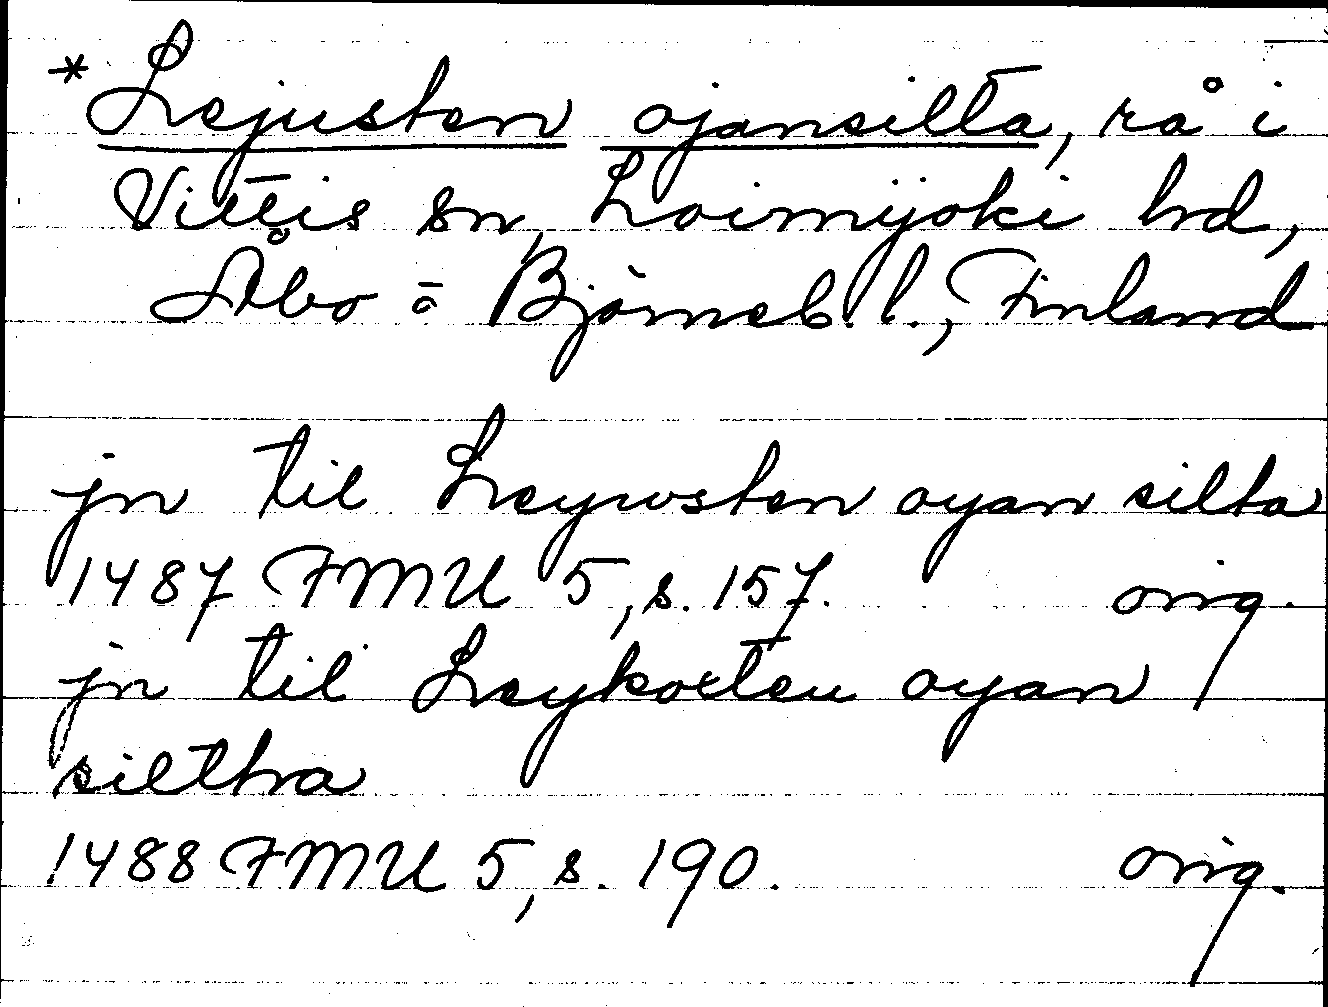 *Lejusten ojansilta, rå i
Vittis sn, Loimijoki hd,
Åbo o Björneb. l., Finland
jn til Leywsten oyan silta
1487 FMU 5, s. 157. orig.
jn til Leykosten oyan
siltha
1488 FMU 5, s. 190. orig.